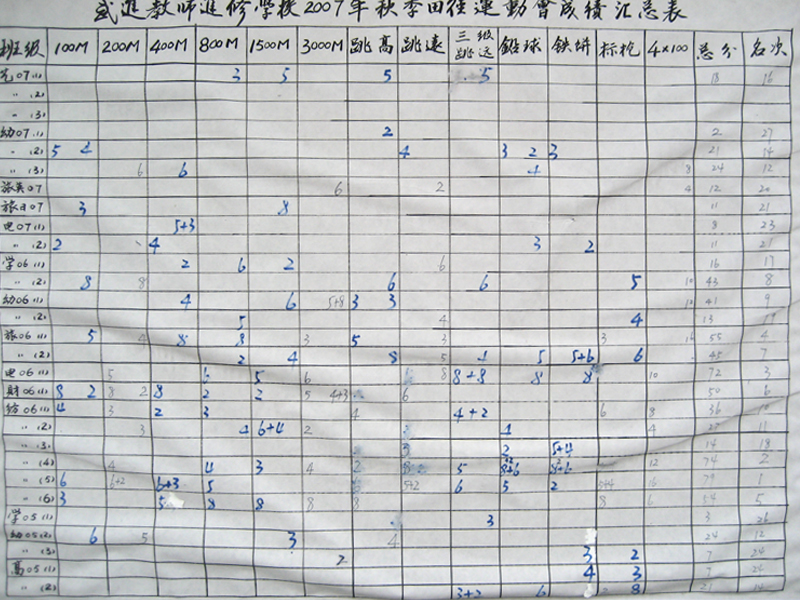 武進教师進修学校2007年秋季田径運動會成績汇总表
班级 100M 200M 400M 800M 1500M 3000M 跳高 跳遠 三级跳远 鉛球 铁饼 标枪 4×100 总分 名次
07(1) 3 5 5 5 18 16
〃(2)
〃(3)
幼07(1) 2 2 27
〃(2) 5 4 4 3 2 3 21 14
〃(3) 6 6 4 8 24 12
旅英07 6 2 4 12 20
旅日07 3 8 11 21
电07(1) 5+3 8 23
〃(2) 2 4 3 2 11 21
学06(1) 2 6 2 6 16 17
〃(2) 8 8 6 6 5 10 43 8
幼06(1) 4 6 5+8 3 3 10 41 9
〃(2) 5 4 4 13 19
旅06(1) 5 4 8 8 3 5 3 3 16 55 4
〃(2) 2 4 8 5 4 5 5+6 6 45 7
电06(1) 5 6 5 6 8 8+8 8 8 10 72 3
財06(1) 8 2 8 2 8 2 2 5 4+3 6 50 6
纺06(1) 4 3 2 3 4 4+2 6 8 36 10
〃(2) 3 4 6+4 2 4 4 27 11
〃(3) 3 2 5+4 14 18
〃(4) 4 4 3 4 2 8 5 12 74 2
〃(5) 6 6+2 6+3 5 5+2 6 5 2 16 79 1
〃(6) 3 5 8 8 8 8 8 6 54 5
学05(1) 3 3 26
幼05(2) 6 5 3 4 24 12
〃(3) 2 3 2 7 24
高05(1) 4 3 7 24
〃(2) 3+2 6 2 8 21 14